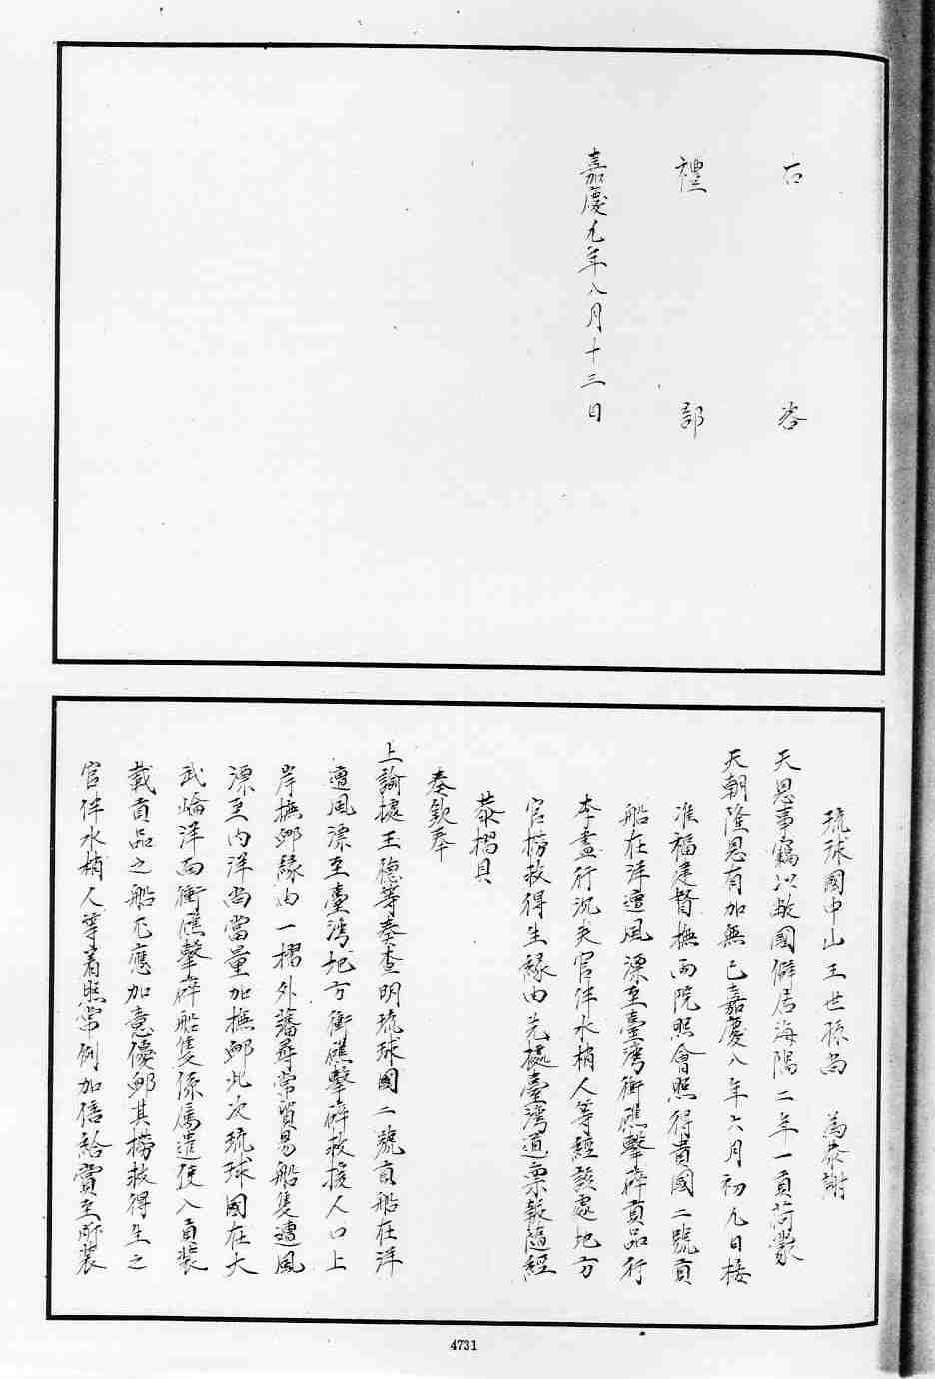 右咨
禮部
嘉慶元年八月十三日
琉球國中山王世孫尚　為恭謝
天恩事竊以敝國僻居海隅二年一貢荷蒙
天朝隆恩有加無已嘉慶八年六月初九日接
准福建督撫兩院照會照得貴國二號貢
船在洋遭風漂至臺灣衝礁擊碎貢品行
李盡行沉失官伴水梢人等經該處地方
官撈救得生緣由先據臺灣道稟報隨經
恭摺具
奏欽奉
上諭據玉德等奏查明琉球國二號貢船在洋
遭風漂至臺灣地方衝礁擊碎救援人口上
岸撫卹緣由一摺外藩尋常貿易船隻遭風
漂至內洋尚當量加撫卹此次琉球國在大
武崙洋面衝礁擊碎船隻係屬遣使入貢裝
載貢品之船尤應加意優卹其撈救得生之
官伴水梢人等着照常例加倍給賞至所裝
4731